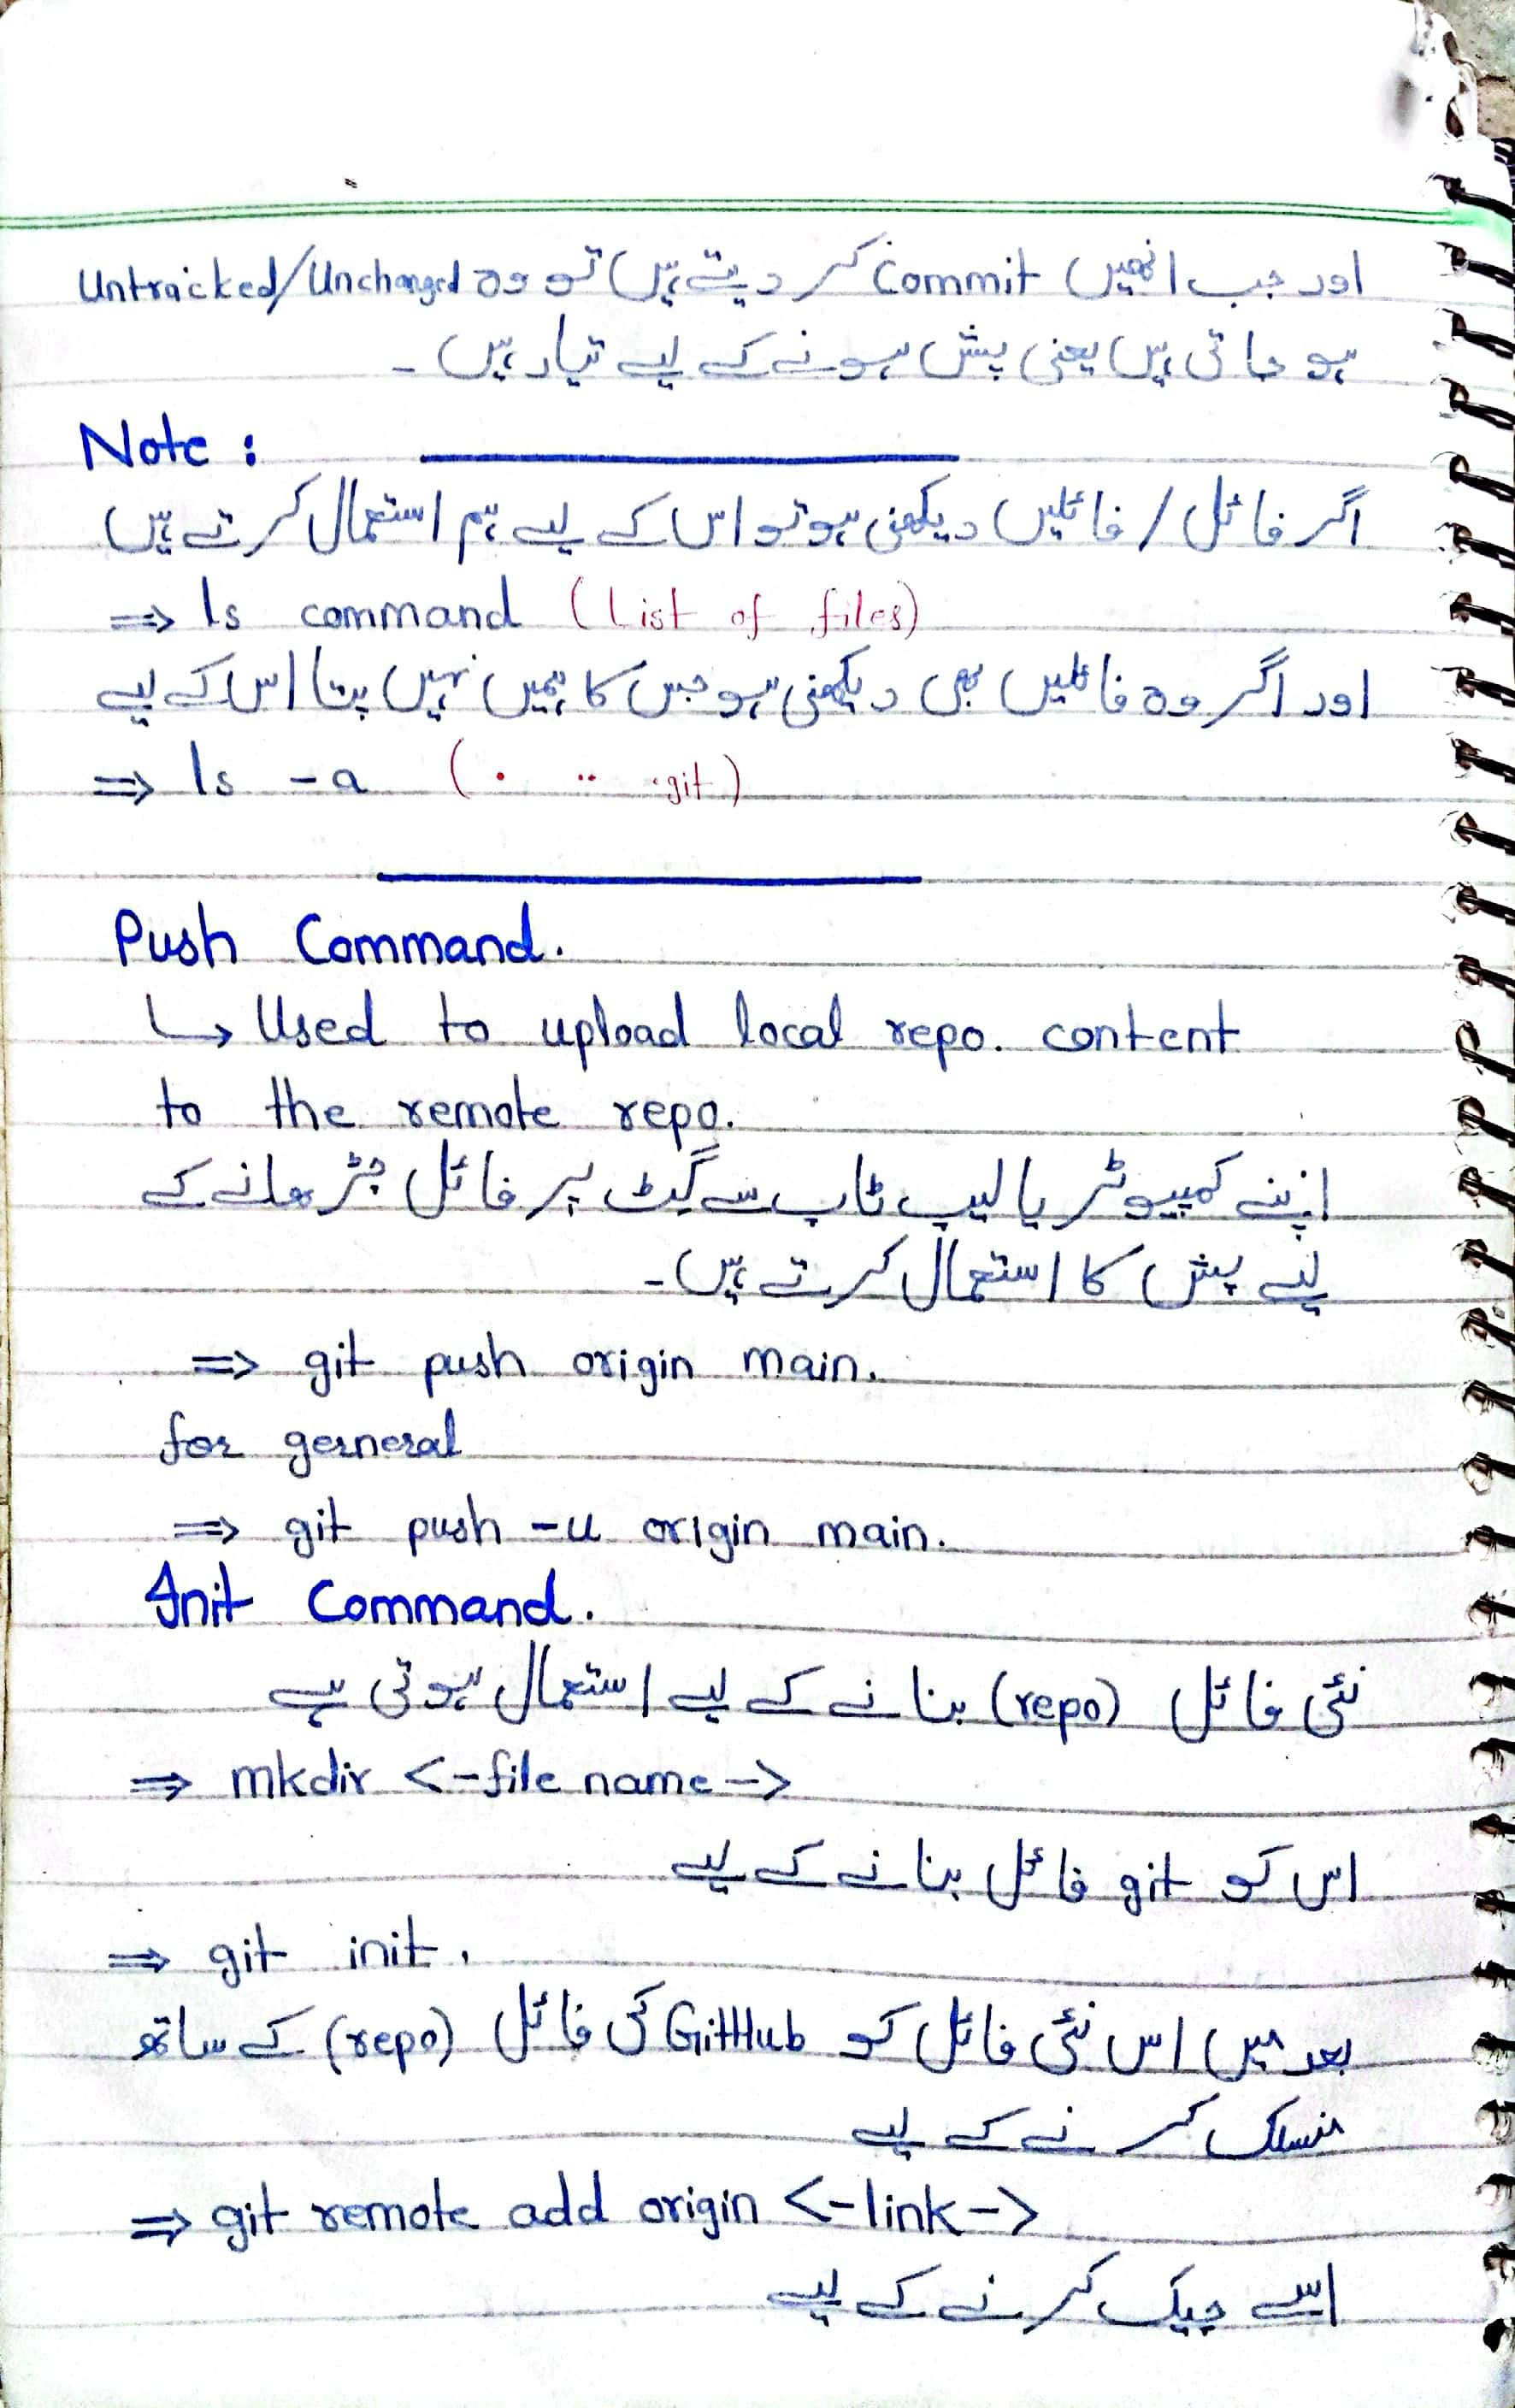 اور جب انھیں Commit کر دیتے ہیں تو وہ Untracked/Unchanged
ہو جاتی ہیں یعنی پش ہونے کے لیے تیار ہیں ۔
Note :
اگر فائل / فائلیں دیکھنی ہو تو اس کے لیے ہم استعمال کرتے ہیں
⇒ ls command (List of files)
اور اگر وہ فائلیں بھی دیکھنی ہو جس کا ہمیں نہیں پتا اس کے لیے
⇒ ls -a ( . .. .git )
Push Command.
↳ Used to upload local repo. content
to the remote repo.
اپنے کمپیوٹر یا لیپ ٹاپ سے گِٹ پر فائل چڑھانے کے
لیے پش کا استعمال کرتے ہیں۔
⇒ git push origin main.
for gerneral
⇒ git push -u origin main.
Init Command.
نئی فائل (repo) بنانے کے لیے استعمال ہوتی ہے
⇒ mkdir <-file name->
اس کو git فائل بنانے کے لیے
⇒ git init.
بعد میں اس نئی فائل کو GitHub کی فائل (repo) کے ساتھ
منسلک کرنے کے لیے
⇒ git remote add origin <-link->
اسے چیک کرنے کے لیے